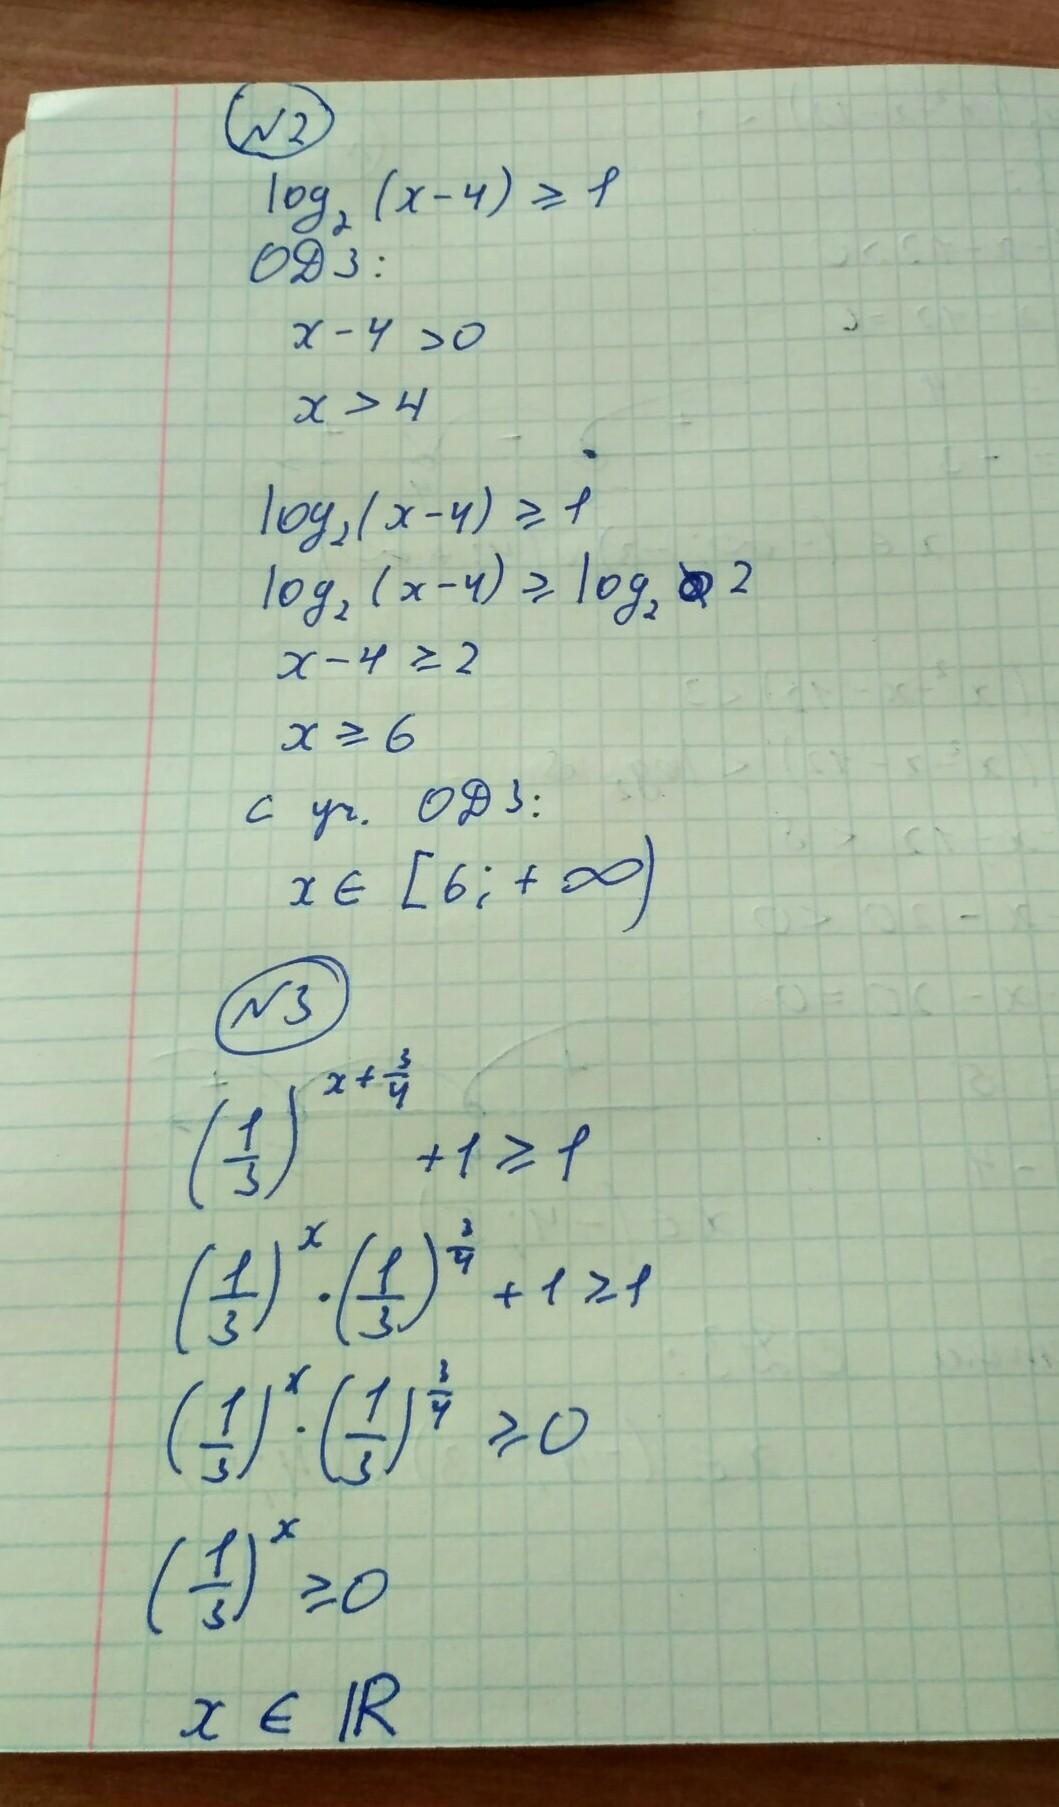 №2
log₂(x-4) ≥ 1
ОДЗ:
x-4 >0
x > 4
log₂(x-4) ≥ 1
log₂(x-4) ≥ log₂ 2
x-4 ≥ 2
x ≥ 6
с уч. ОДЗ:
x ∈ [6; + ∞)
№3
(1/3)^(x+3/4) +1 ≥ 1
(1/3)^x · (1/3)^(3/4) + 1 ≥ 1
(1/3)^x · (1/3)^(3/4) ≥ 0
(1/3)^x ≥ 0
x ∈ ℝ